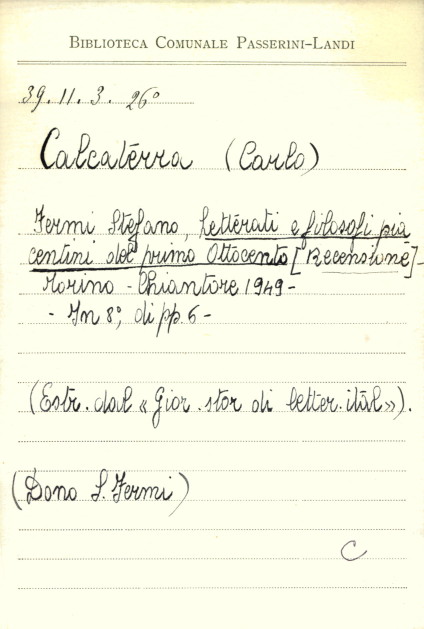 BIBLIOTECA COMUNALE PASSERINI-LANDI
39.11.3. 26°
Calcaterra (Carlo)
Fermi Stefano, letterati e filosofi pia
centini del primo Ottocento [Recensione]-
Torino - Chiantore 1949-
- In 8°, di pp. 6 -
(Estr. dal « Gior. stor di letter. ital »).
(Dono S. Fermi)
C